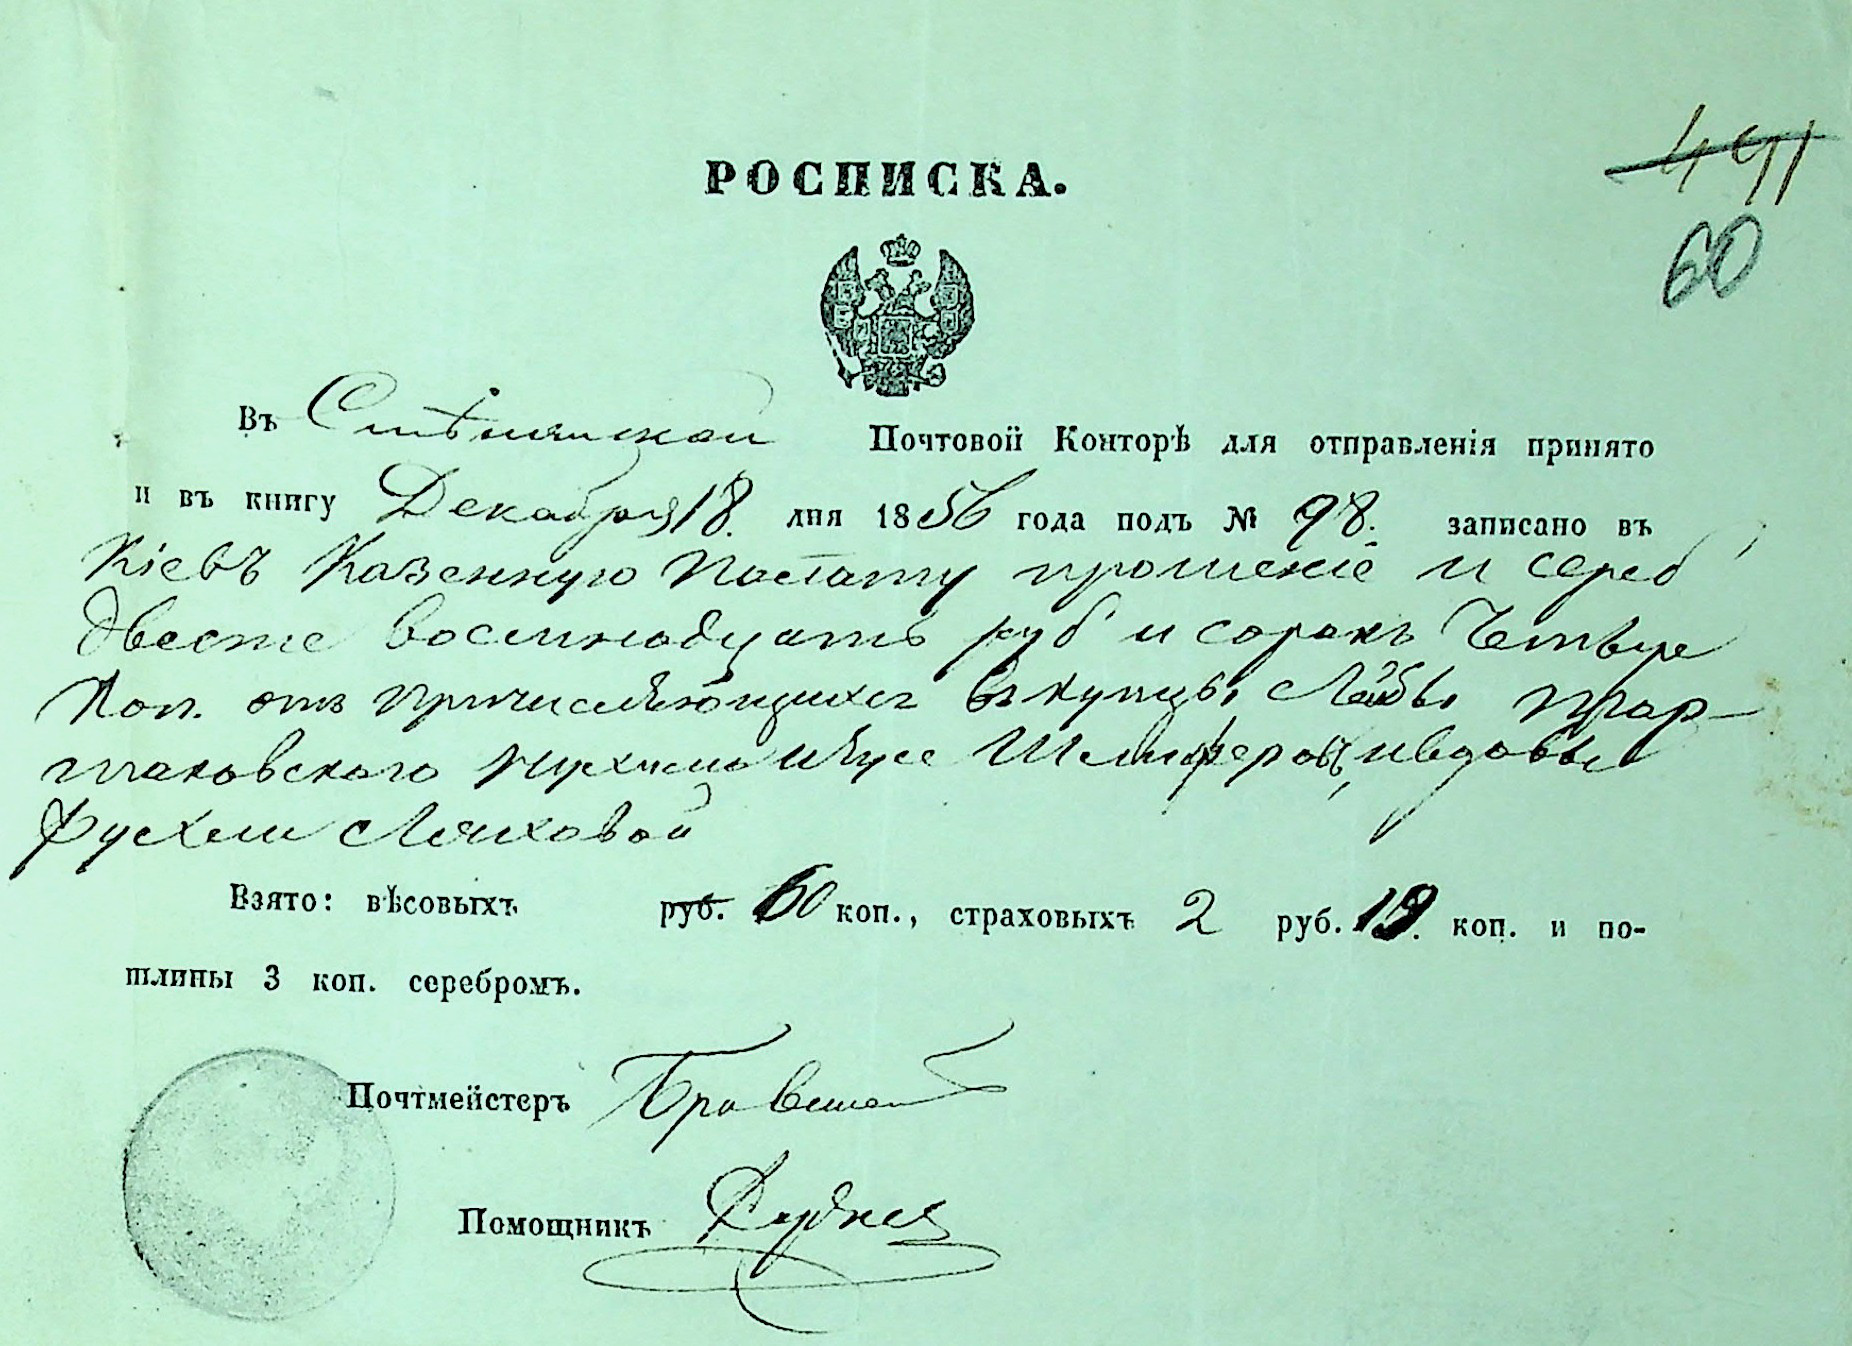 РОСПИСКА.
491
60
Въ Смѣлянской Почтовой Конторѣ для отправленія принято
и въ книгу Декабря 18. дня 1856 года подъ № 98. записано въ
Кіевъ Казенную Палату прошеніе и сереб
двести восемнадцать руб и сорокъ четыре
Коп. отъ причисляющихся въ купцы Лейбы Тар-
таковского и вдовы
Ляховой
Взято: вѣсовыхъ руб. 60 коп., страховыхъ 2 руб. 19. коп. и по-
шлины 3 коп. серебромъ.
Почтмейстеръ
Помощникъ